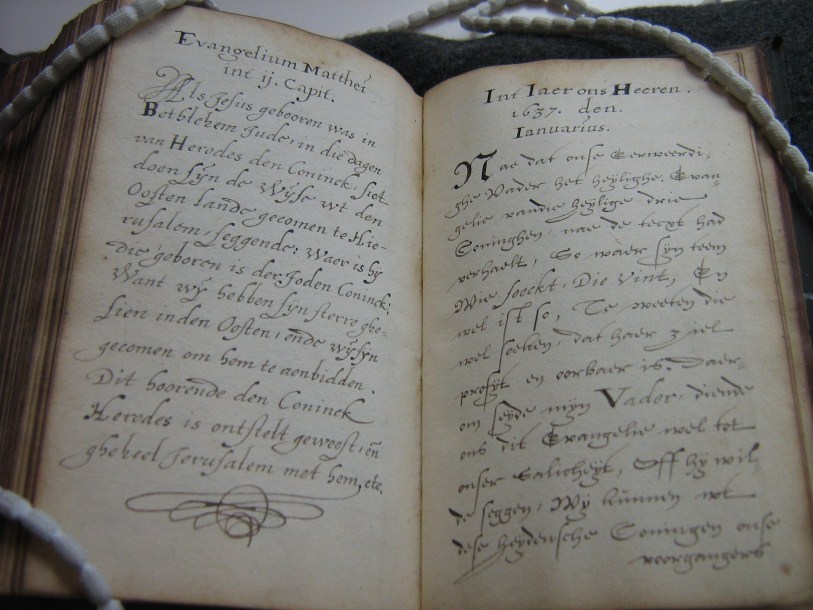 Evangelium Matthei
int ij. Capit.
Als Jesus gebooren was in
Bethlehem Jude, in die dagen
van Herodes den Coninck, siet
doen sijn de wijse wt den
Oosten lande gecomen te Hie-
rusalem, seggende: Waer is hy
die geboren is der Joden Coninck:
Want wij hebben sijn sterre ghe-
sien inden Oosten, ende wij sijn
gecomen om hem te aenbidden.
Dit hoorende den Coninck
Herodes is ontstelt geweest, en̄
gheheel Jerusalem met hem, etc.
Int Iaer ons Heeren.
1637. den.
Ianuarius.
Nae dat onse Eerweerdi-
ghe Vader, het heylighe Evan-
gelie vandie heylige drie
Coninghen, nae de tecxt had
verhaelt, So waer syn teem
Wie soeckt, Die vint, En
wel ist so, Te weeten die
wel soeken, dat haer ziel
profyt en oorbaer is. Daer-
om seyde myn Vader, diende
ons dit Evangelie wel tot
onser Salicheyt, Off hy wil
de seggen, Wy kunnen wt
dese heydensche Coningen onse
voorgangers